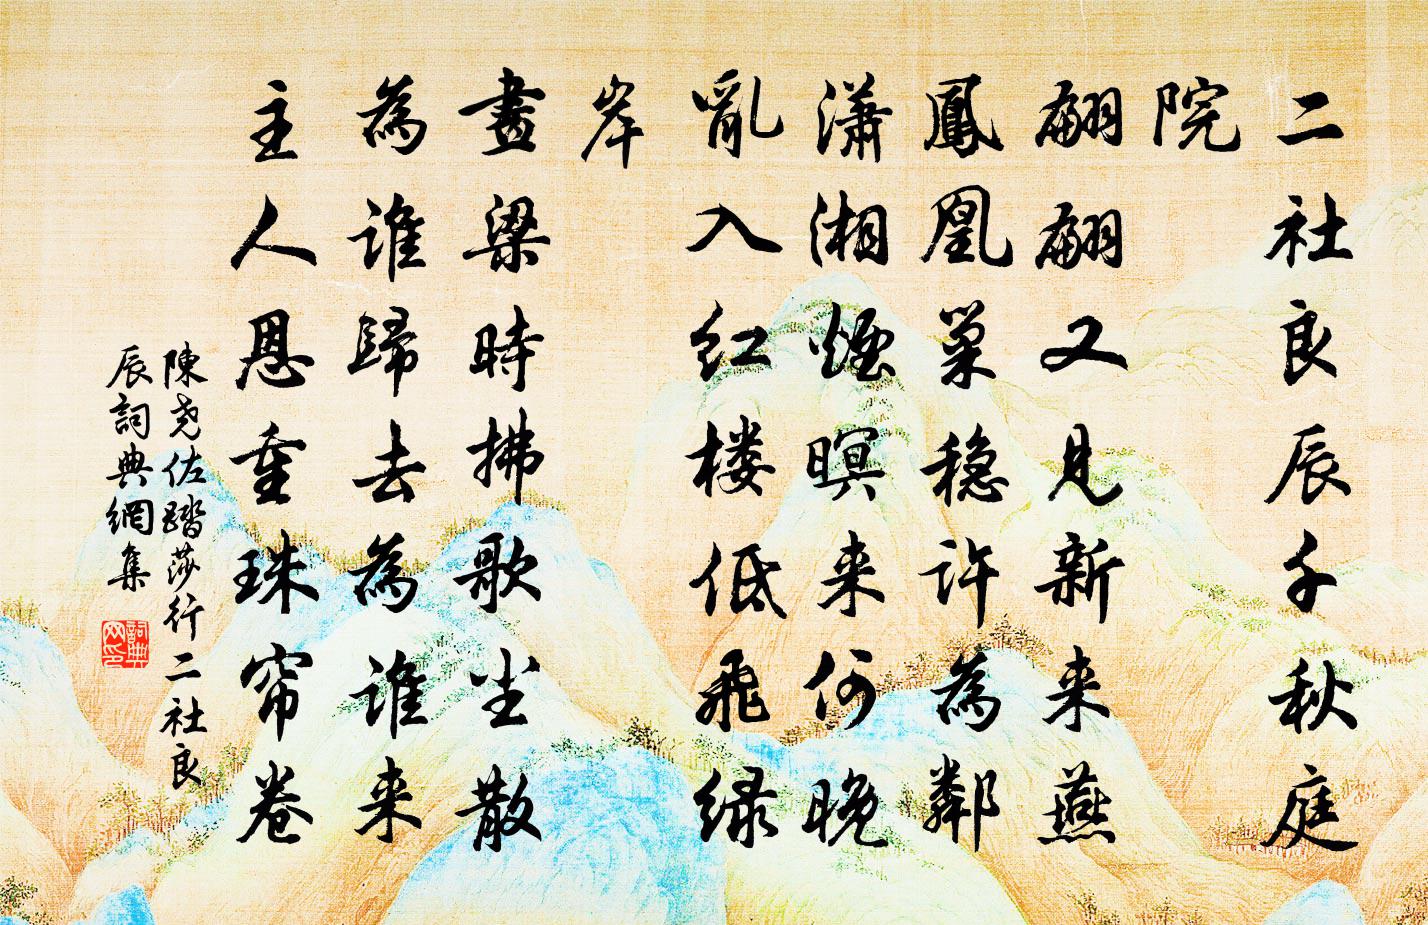 二社良辰千秋庭
院
翩翩又見新来燕
鳳凰巢稳許為鄰
瀟湘煙暝来何晚
亂入红楼低飛绿
岸
畫梁時拂歌尘散
為谁歸去為谁来
主人恩重珠帘卷
陳尧佐踏莎行二社良
辰詞典網集
詞典
网印